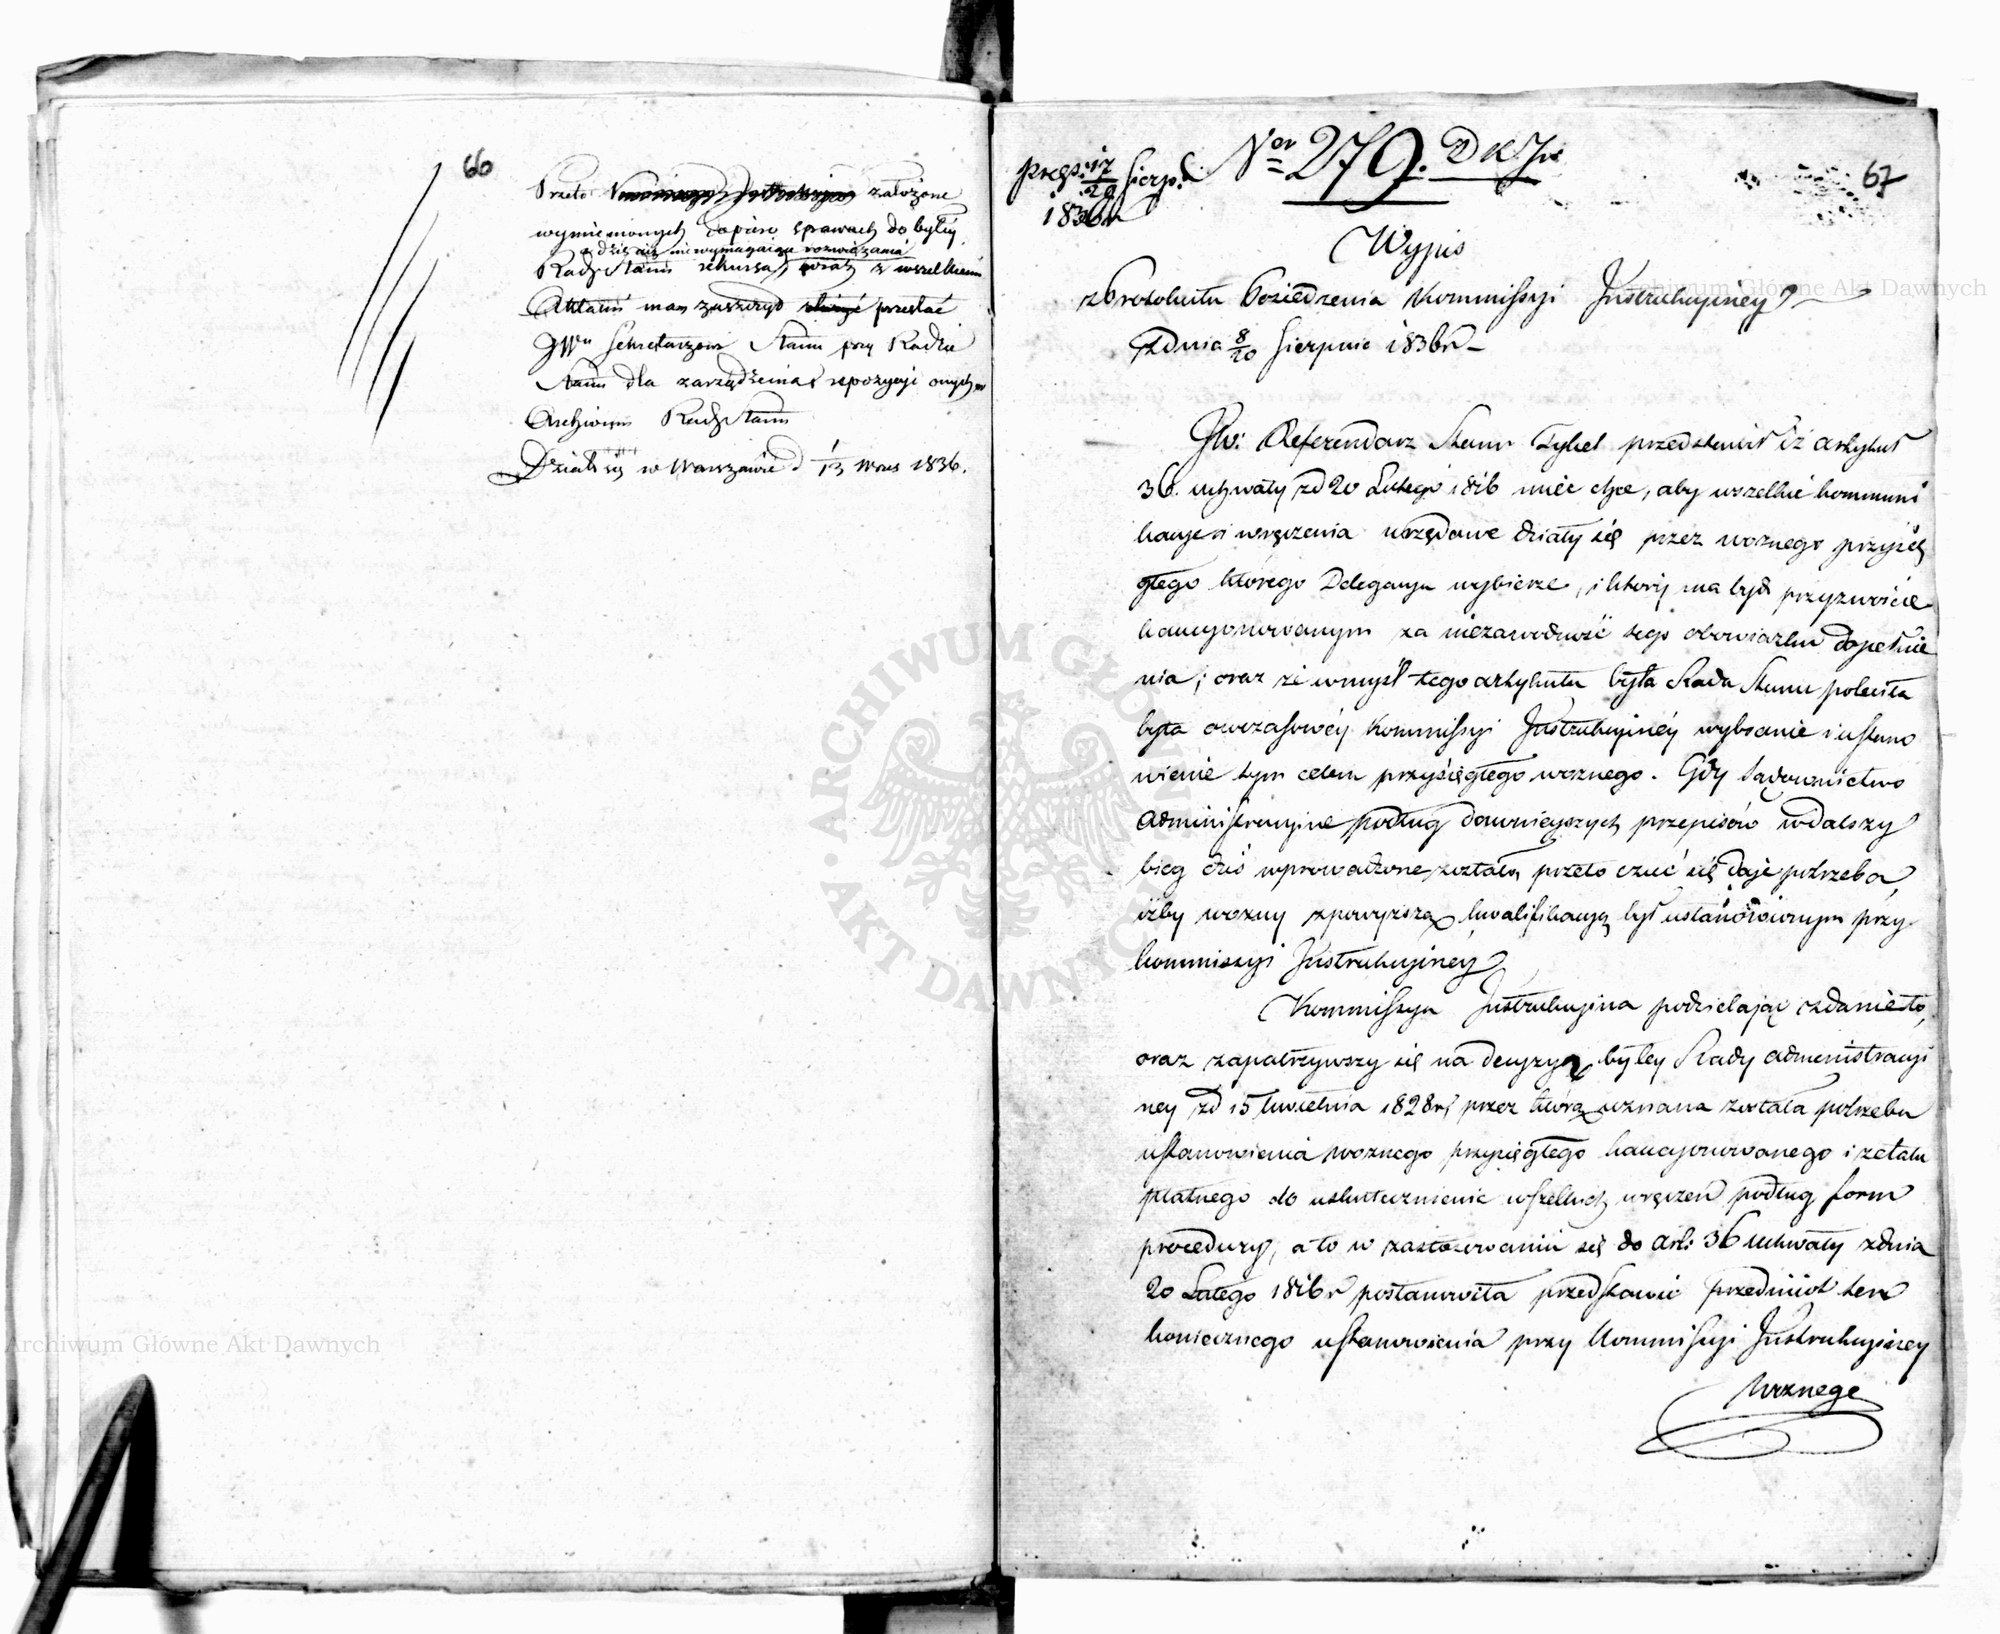 66
Przeto założone
wymienionych dopiero sprawach do byłéy
a dziś już niewymagaiące rozwiązania
Rady Stanu rekursa, wraz z wszelkiemi
Aktami mam zaszczyd przesłać
JWu Sekretarzowi Stanu przy Radzie
Stanu dla zarządzenia repozycyi onych w
Archiwum Rady Stanu
Działo się w Warszawie d 1/13 Wrzes 1836.
67
Nor 279. DKJu
prez: 17/29 Sierp.
1836r
Wypis
z Protokułu Posiedzenia Kommissyi Instrukcyiney
z dnia 8/20 Sierpnia 1836r
JW: Referendarz Stanu Tykel przedstawił iż artykuł
36. uchwały z d 20 Lutego 1816 mieć chce, aby wszelkie kommuni
kacye i wręczenia urzędowe działy się przez woznego przysię
głego którego Delegacya wybierze, i który ma być przyzwoicie
kaucyonowanym za niezawodność tego obowiązku dopełnie
nia; oraz że w myśl tego artykułu była Rada Stanu poleciła
była owczasowéy Kommissyi Instrukcyinéy wybranie i ustano
wienie tym celem przysięgłego woznego. Gdy Sądownictwo
Administracyine podług dawnieyszych przepisów w dalszy
bieg dziś wprowadzone zostało, przeto czuć się daje potrzeba,
iżby wozny z powyższą kwalifikacyą był ustanowionym przy
kommissyi Instrukcyinéy
Kommissya Instrukcyina podzielając zdanie to,
oraz zapatrzywszy się na decyzyą byłey Rady Administracyi
ney z d 15 kwietnia 1828r, przez którą uznana została potrzeba
ustanowienia woznego przysięgłego kaucyonowanego i z etatu
płatnego do uskutecznienia wszelkich wręczeń podług form
procedury, a to w zastosowaniu się do art: 36 uchwały z dnia
20 Lutego 1816r postanowiła przedstawić przedmiot ten
koniecznego ustanowienia przy Kommissyi Instrukcyiney
Woznego
Archiwum Główne Akt Dawnych
Archiwum Główne Akt Dawnych
ARCHIWUM GŁÓWNE AKT DAWNYCH